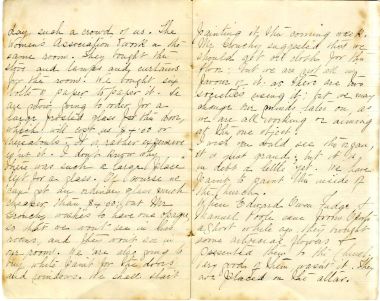 day, such a crowd of us. The
Womens Association work in the
same room. They bought the
stove and lamps and curtains
for the room. We bought six
bolts of paper to paper it. We
are now going to order for a
large frosted glass for the door
which will cost us $ 7.00 or
thereabouts; it is rather expensive
isn't it. I don't know why
there was such a large place
left for a glass. Of course we
can get any ordinary glass much
cheaper than $7.00, but Mr
wishes to have one opaque
so that we won't see in his
room, and they won't see in
our room. We are also going to
buy white paint for the doors
and windows. We shall start
painting it, the coming week.
Mr suggested that we
should get oil cloth for the
floor; but we are not all in
favour of it as there are two
societies using it; but we may
change our minds later on as
we are all working or aiming
at the one object.
I wish you could see the organ,
it is just grand; but it is
in debt a little yet. We have
being to paint the inside of
the church.
When Edward Owen Judge &
Manuel Poole came from
a short while ago, they brought
some artificial flowers &
presented them to the Church
very good of them wasn't it. They
are placed on the altar.